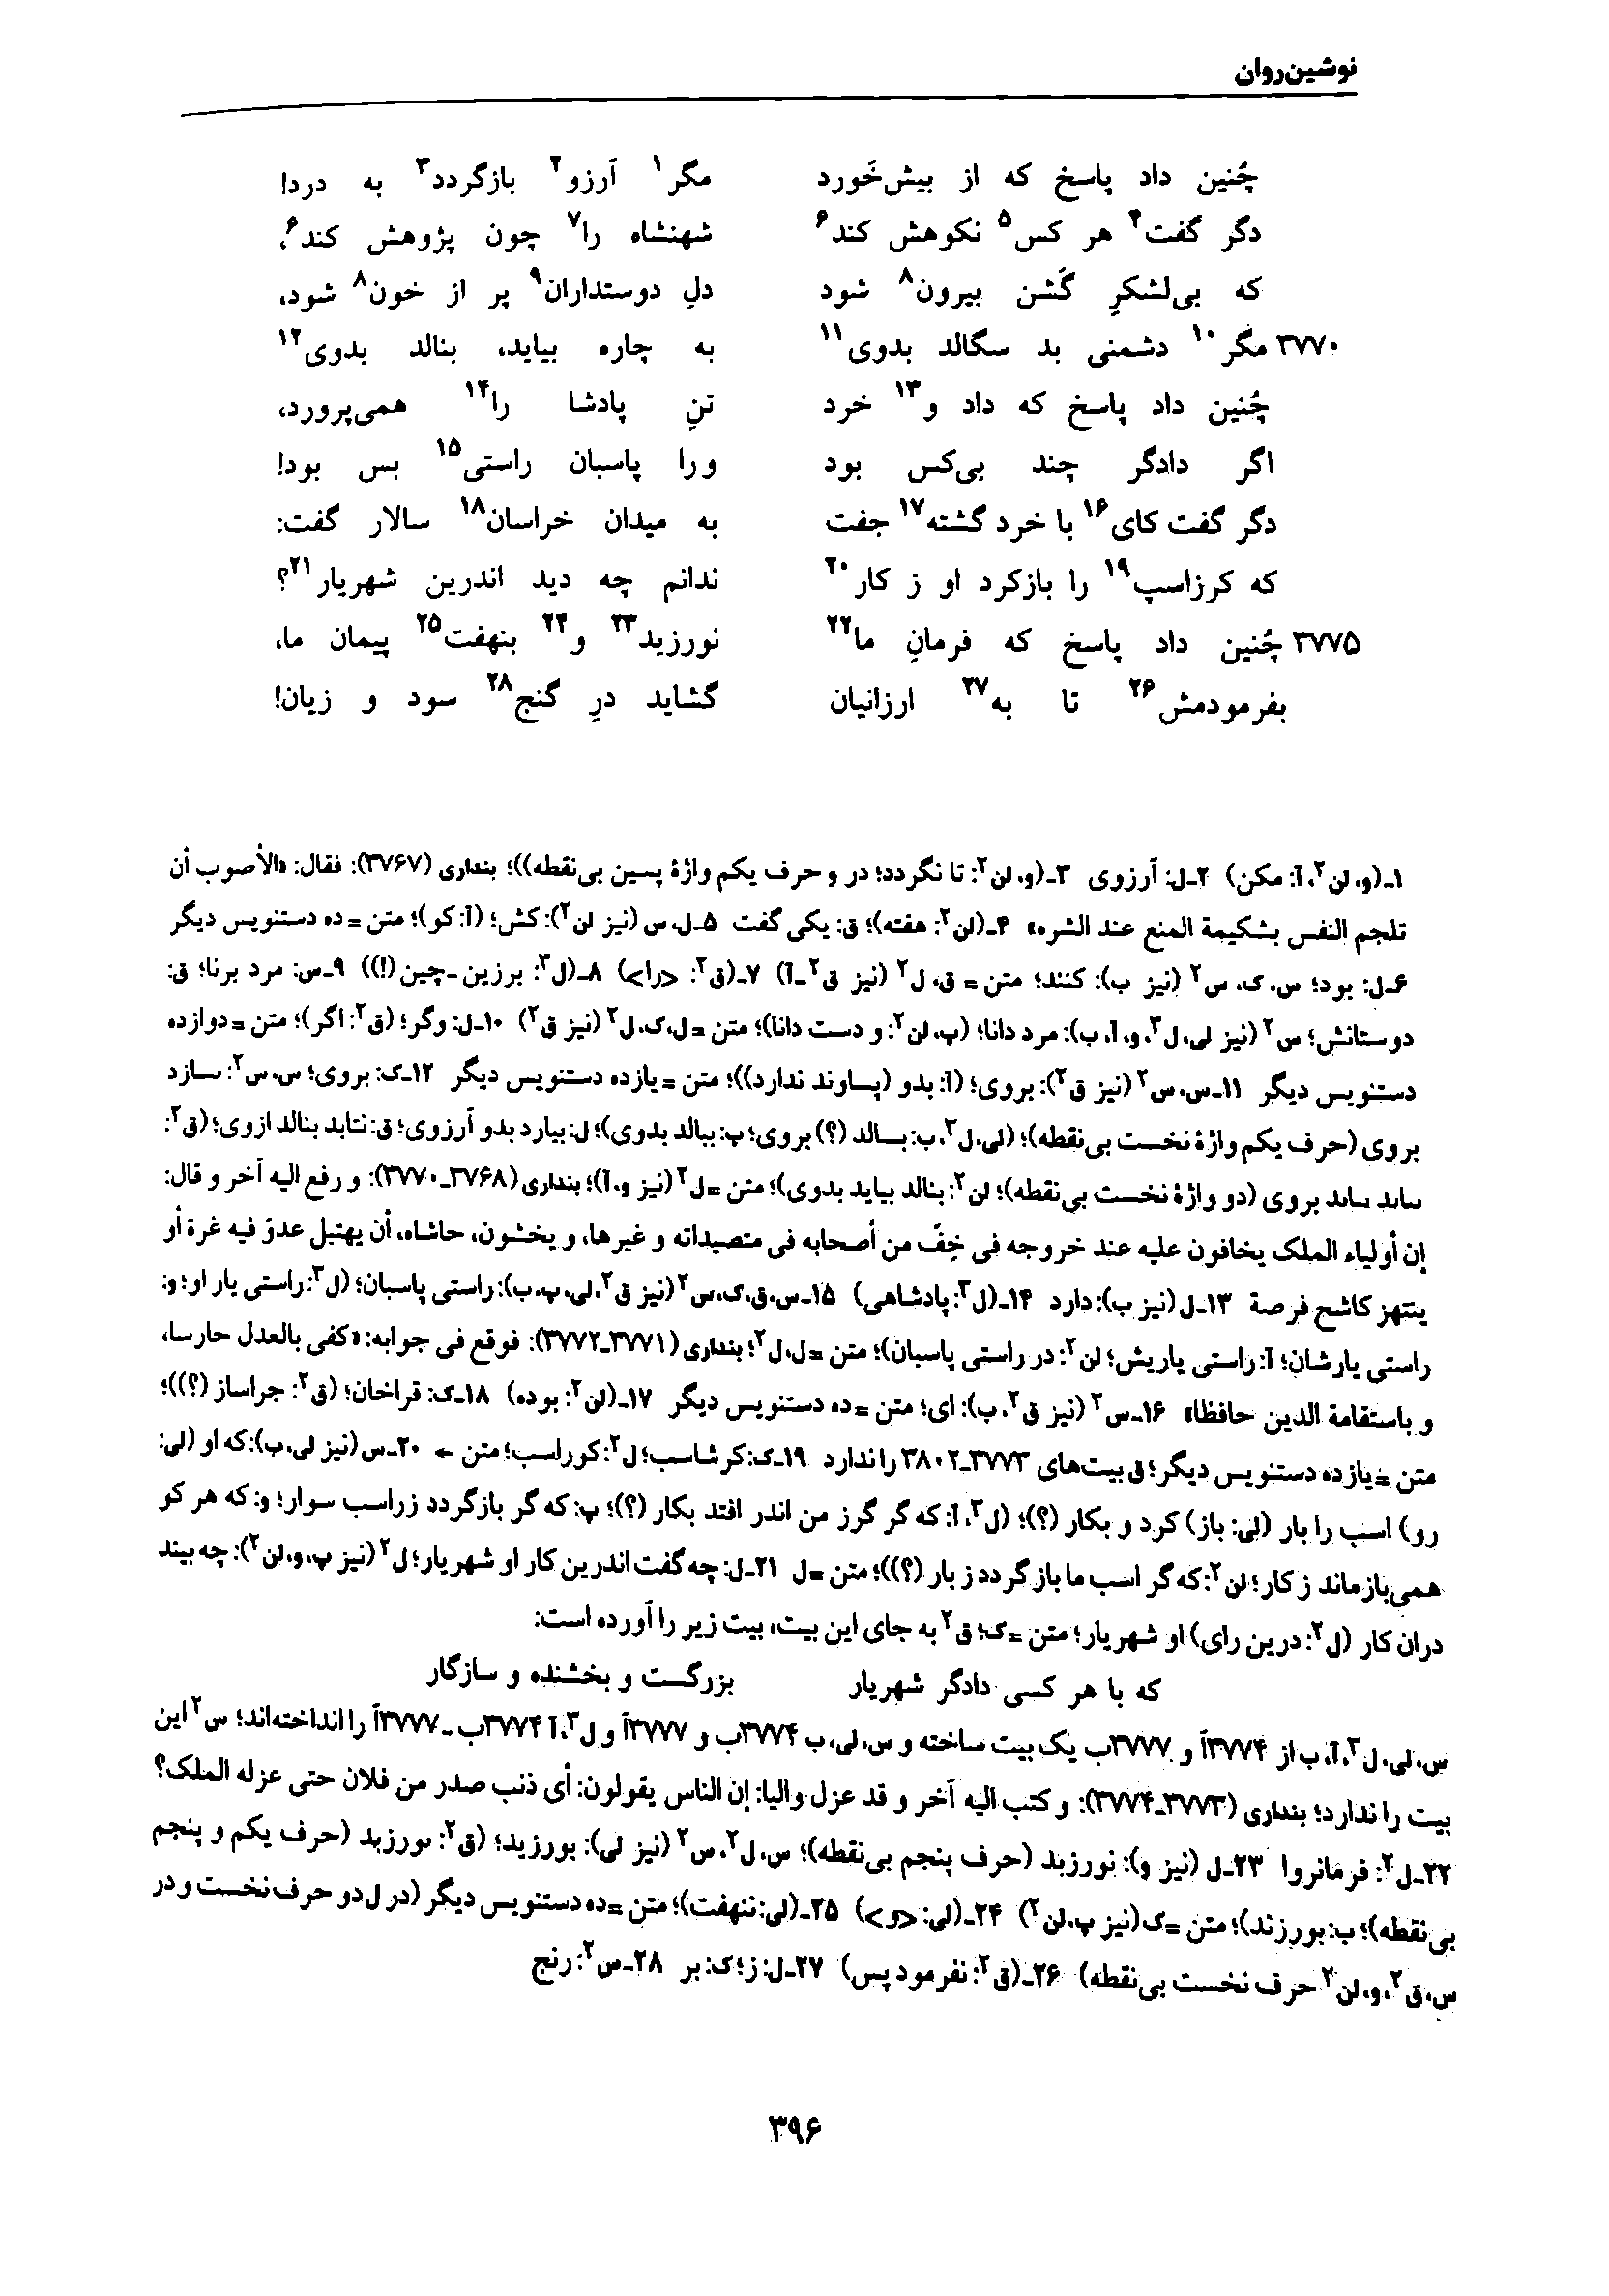 نوشین‌روان
چُنین داد پاسخ که از بیش‌خَورد مگر۱ آرزو۲ بازگردد۳ به درد!
دگر گفت۴ هر کس۵ نکوهش کند۶ شهنشاه را۷ چون پژوهش کند۶،
که بی‌لشکرِ گَشن بیرون۸ شود دلِ دوستداران۹ پر از خون۸ شود،
۳۷۷۰ مگر۱۰ دشمنی بد سگالد بدوی۱۱ به چاره بیاید، بنالد بدوی۱۲
چُنین داد پاسخ که داد و۱۳ خرد تنِ پادشا را۱۴ همی‌پرورد،
اگر دادگر چند بی‌کس بود ورا پاسبان راستی۱۵ بس بود!
دگر گفت کای۱۶ با خرد گشته۱۷ جفت به میدان خراسان۱۸ سالار گفت:
که کرزاسپ۱۹ را بازکرد او ز کار۲۰ ندانم چه دید اندرین شهریار۲۱؟
۳۷۷۵ چُنین داد پاسخ که فرمانِ ما۲۲ نورزید۲۳ و۲۴ بنهفت۲۵ پیمان ما،
بفرمودمش۲۶ تا به۲۷ ارزانیان گشاید درِ گنج۲۸ سود و زیان!
۱ـ(و، لن۲، آ: مکن) ۲ـل: آرزوی ۳ـ(و، لن۲: تا نگردد؛ در و حرف یکم واژهٔ پسین بی‌نقطه))؛ بنداری (۳۷۶۷): فقال: «الأصوب أن
تلجم النفس بشکیمة المنع عند الشره» ۴ـ(لن۲: هفته)؛ ق: یکی گفت ۵ـل، س (نیز لن۲): کش؛ (آ: کو)؛ متن = ده دستنویس دیگر
۶ـل: بود؛ س، ک، س۲ (نیز ب): کنند؛ متن = ق، ل۲ (نیز ق۲ـآ) ۷ـ(ق۲: <را>) ۸ـ(ل۳: برزین ـ چین (!)) ۹ـس: مرد برنا؛ ق:
دوستانش؛ س۲ (نیز لی، ل۳، و، آ، ب): مرد دانا؛ (پ، لن۲: و دست دانا)؛ متن = ل، ک، ل۲ (نیز ق۲) ۱۰ـل: وگر؛ (ق۲: اگر)؛ متن = دوازده
دستنویس دیگر ۱۱ـس، س۲ (نیز ق۲): بروی؛ (آ: بدو (پساوند ندارد))؛ متن = یازده دستنویس دیگر ۱۲ـک: بروی؛ س، س۲: سازد
بروی (حرف یکم واژهٔ نخست بی‌نقطه)؛ (لی، ل۳، ب: بسالد (؟) بروی؛ پ: ببالد بدوی)؛ ل: بیارد بدو آرزوی؛ ق: نتابد بنالد ازوی؛ (ق۲:
ساید ساید بروی (دو واژهٔ نخست بی‌نقطه)؛ لن۲: بنالد بیاید بدوی)؛ متن = ل۲ (نیز و، آ)؛ بنداری (۳۷۶۸ـ۳۷۷۰): و رفع الیه آخر و قال:
إن أولیاء الملک یخافون علیه عند خروجه فی خِفّ من أصحابه فی متصیداته و غیرها، و یخشون، حاشاه، أن یهتبل عدوّ فیه غرة أو
ینتهز کاشح فرصة ۱۳ـل (نیز ب): دارد ۱۴ـ(ل۳: پادشاهی) ۱۵ـس، ق، ک، س۲ (نیز ق۲، لی، پ، ب): راستی پاسبان؛ (ل۳: راستی یار او؛ و:
راستی یارشان؛ آ: راستی یاریش؛ لن۲: در راستی پاسبان)؛ متن = ل، ل۲؛ بنداری (۳۷۷۱ـ۳۷۷۲): فوقع فی جوابه: «کفی بالعدل حارسا،
و باستقامة الدین حافظا» ۱۶ـس۲ (نیز ق۲، ب): ای؛ متن = ده دستنویس دیگر ۱۷ـ(لن۲: بوده) ۱۸ـک: قراخان؛ (ق۲: جراساز (؟))؛
متن = یازده دستنویس دیگر؛ ق بیت‌های ۳۷۷۳ـ۳۸۰۲ را ندارد ۱۹ـک: کرشاسب؛ ل۲: کوراسب؛ متن ← ۲۰ـس (نیز لی، ب): که او (لی:
رو) اسب را بار (لی: باز) کرد و بکار (؟)؛ (ل۳، آ: که گر گرز من اندر افتد بکار (؟)؛ پ: که گر بازگردد زراسب سوار؛ و: که هر کو
همی‌بازماند ز کار؛ لن۲: که گر اسب ما بازگردد ز بار (؟))؛ متن = ل ۲۱ـل: چه گفت اندرین کار او شهریار؛ ل۲ (نیز پ، و، لن۲): چه بیند
دران کار (ل۲: درین رای) او شهریار؛ متن = ک؛ ق۲ به جای این بیت، بیت زیر را آورده است:
که با هر کسی دادگر شهریار بزرگست و بخشنده و سازگار
س، لی، ل۳، آ، ب از ۳۷۷۴آ و ۳۷۷۷ب یک بیت ساخته و س، لی، ب ۳۷۷۴ب و ۳۷۷۷آ و ل۳، آ ۳۷۷۴ب ـ ۳۷۷۷آ را انداخته‌اند؛ س۲ این
بیت را ندارد؛ بنداری (۳۷۷۳ـ۳۷۷۴): و کتب الیه آخر و قد عزل والیا: إن الناس یقولون: أی ذنب صدر من فلان حتی عزله الملک؟
۲۲ـل۲: فرمانروا ۲۳ـل (نیز و): نورزبد (حرف پنجم بی‌نقطه)؛ س، ل۲، س۲ (نیز لی): بورزید؛ (ق۲: نورزید (حرف یکم و پنجم
بی‌نقطه)؛ ب: بورزند)؛ متن = ک (نیز پ، لن۲) ۲۴ـ(لی: <و>) ۲۵ـ(لی: ننهفت)؛ متن = ده دستنویس دیگر (در ل دو حرف نخست و در
س، ق۲، و، لن۲ حرف نخست بی‌نقطه) ۲۶ـ(ق۲: نفرمود پس) ۲۷ـل: ز؛ ک: بر ۲۸ـس۲: رنج
۳۹۶